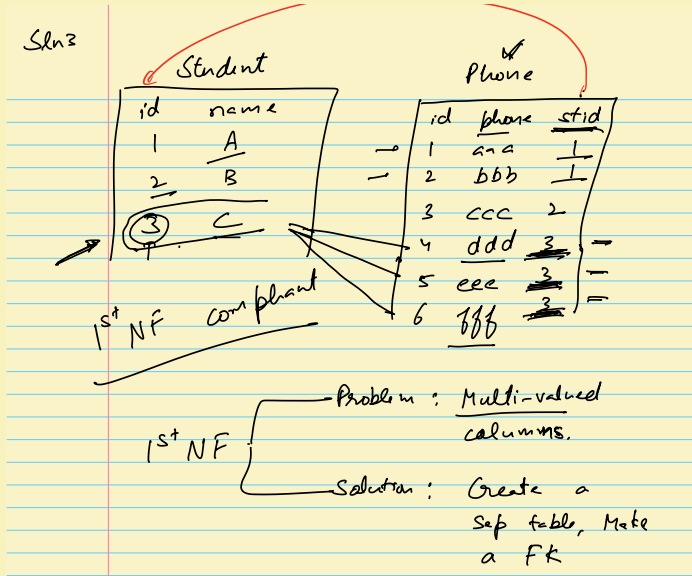 Sln3
Student
id name
1 A
2 B
3 C
Phone
id phone stid
1 aaa 1
2 bbb 1
3 ccc 2
4 ddd 3
5 eee 3
6 fff 3
1st NF compliant
1st NF
Problem : Multi-valued
columns.
Solution : Create a
sep table, Make
a FK